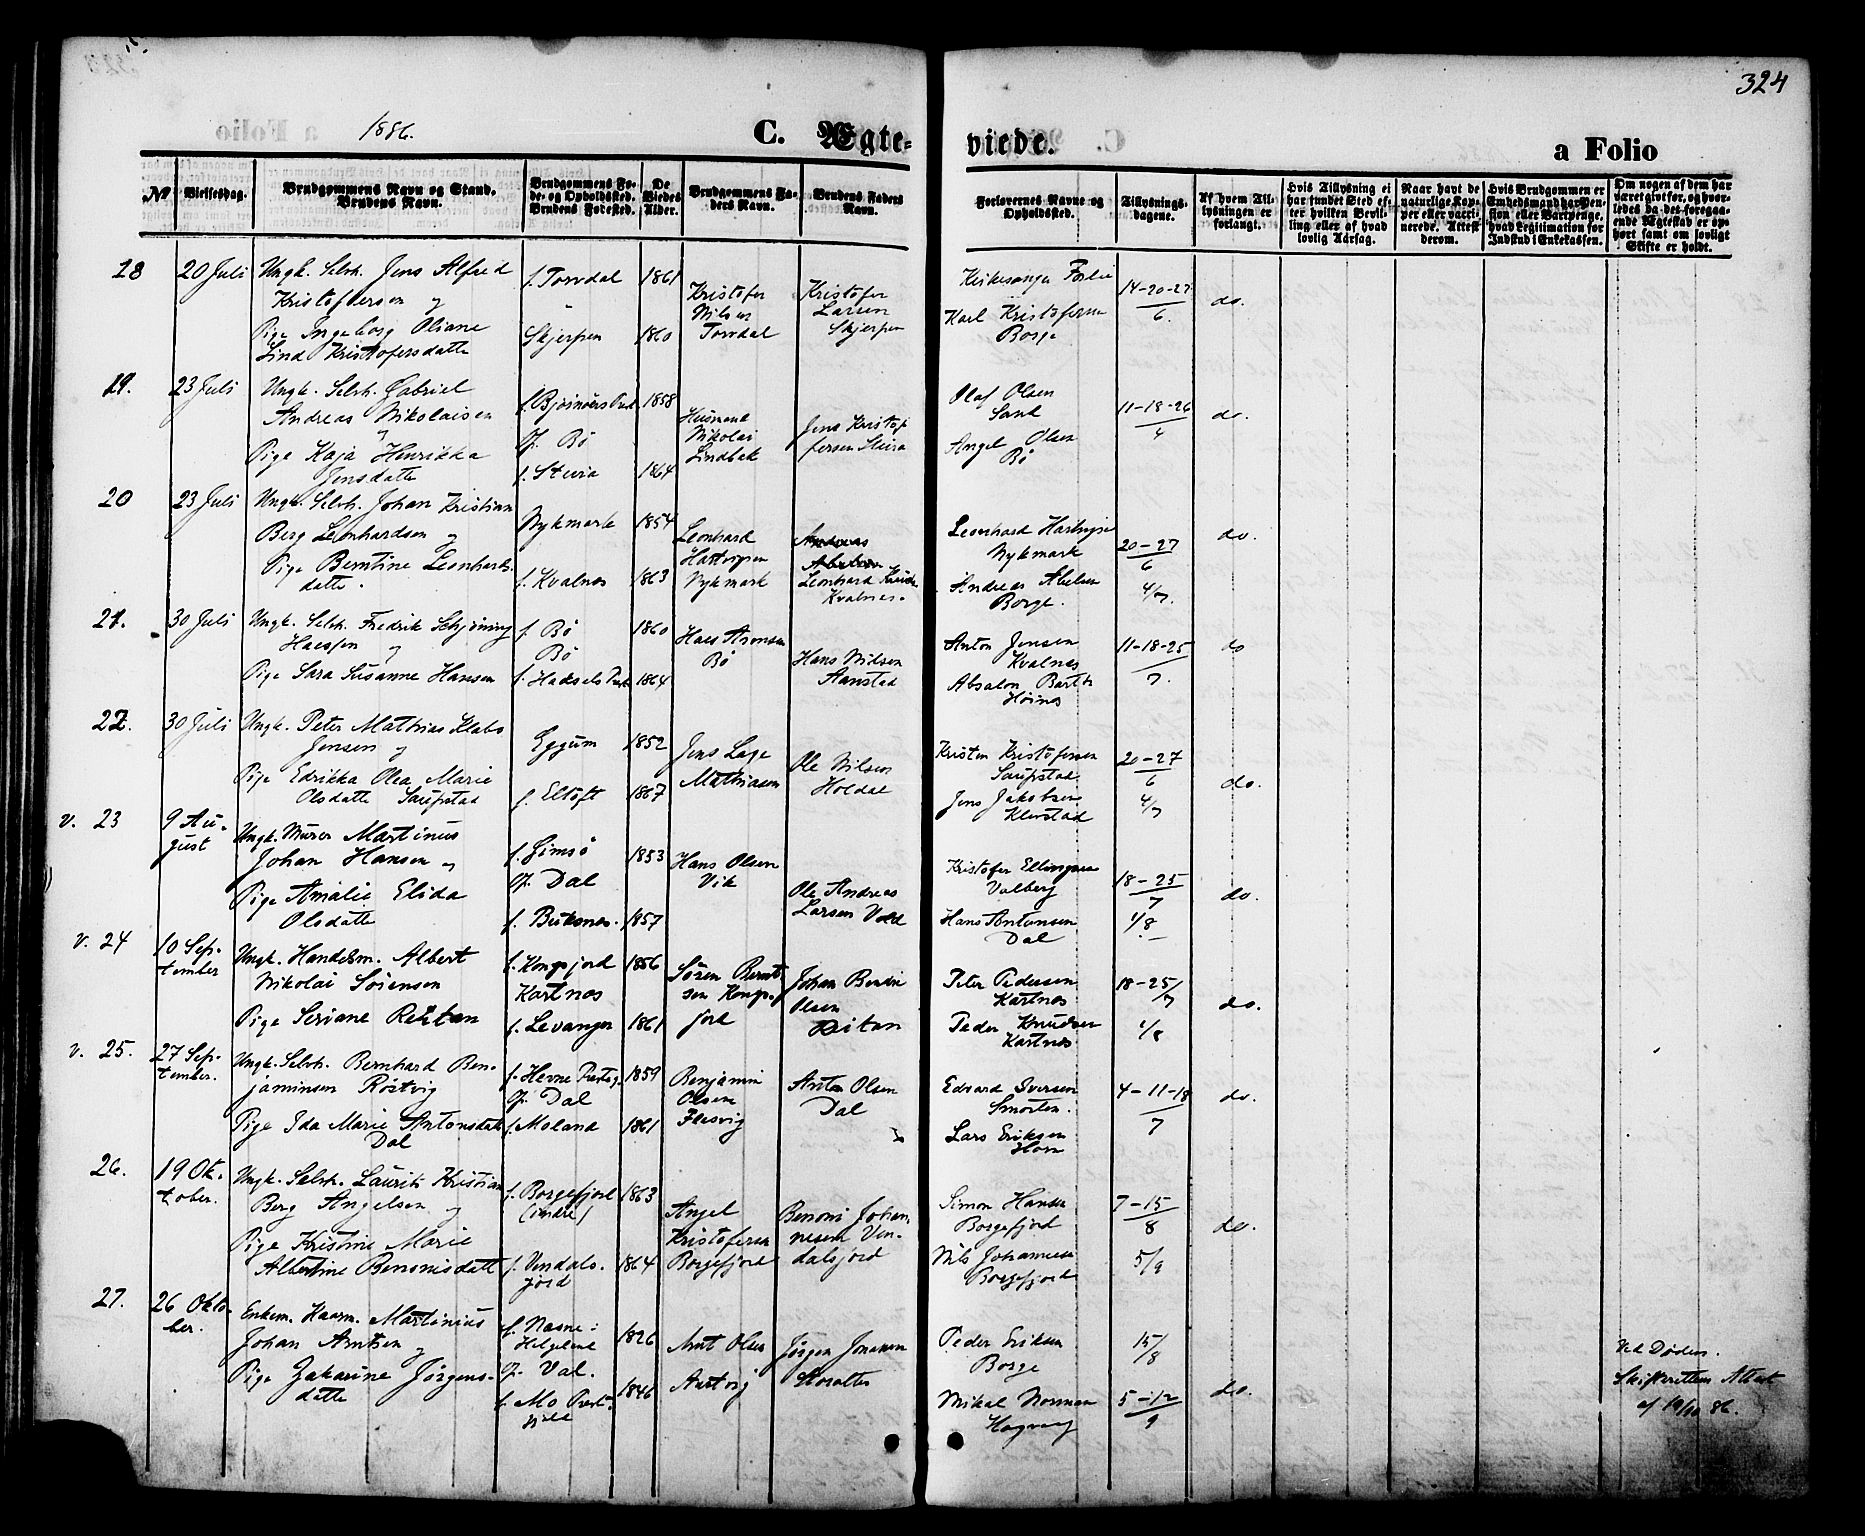 324
1886.
C. Ægte-
viede.
a Folio
№
Vielsesdag.
Brudgommens Navn og Stand.
Brudens Navn.
Brudgommens Fø-
de- og Opholdssted.
Brudens Fødested.
De
Viedes
Alder.
Brudgommens Fa-
ders Navn.
Brudens Faders
Navn.
Forlovernes Navne og
Opholdssted.
Tillysnings-
dagene.
Af hvem Til-
lysningen er
forlangt.
Hvis Tillysning ei
har fundet Sted ef-
ter hvilken Bevil-
ling eller af hvad
lovlig Aarsag.
Naar havt de
naturlige Kop-
per eller vacci-
nerede. Attest
derom.
Hvis Brudgommen er
Embedsmand har Pen-
sion eller Vartpenge,
hvad Legitimation for
Indskud i Enkekassen.
Om nogen af dem har
været gift før, og hvor-
ledes da det foregaa-
ende Ægteskab er op-
hørt samt om lovligt
Skifte er holdt.
18
20 Juli
Ungk. Selvh. Jens Alfred
Kristoffersen og
Pige Ingeborg Oliane
Lind Kristofersdatter
f. Torvdal
Skjerpen
1861
1860
Kristofer
Nilsen
Torvdal
Kristofer
Larsen
Skjerpen
Kirkesanger
Karl Kristofersen
Borge
14-20-27
6
do.
19.
23 Juli
Ungk. Selvh. Gabriel
Andreas Nikolaisen
og
Pige Kaja Henrikka
Jensdatter
Op. Bø
f. Steira
1858
1864
Husmand
Nikolai
Lindbak
Jens Kristof-
fersen Steira
Olaf Olsen
Sand
Angel Olsen
Bø
11-18-26
4
do.
20
23 Juli
Ungk. Selvh. Johan Kristian
Berg Leonhardsen og
Pige Berntine Leonhards-
datter.
Nykmark
f. Kvalnes
1854
1863
Leonhard
Hartvigsen
Nykmark
Andreas
Abelsen
Leonhard
Kvalnes.
Leonhard Hartvigsen
Nykmark
Andreas Abelsen
Borge.
20-27
6
4/7.
do.
21.
30 Juli
Ungk. Selvh. Fredrik Schjøning
Haessen og
Pige Sara Susanne Hansen
f. Bø
Bø
f. Hadsels Præst
1860
1864
Haes Aronsen
Bø
Hans Nilsen
Aanstad
Anton Jensen
Kvalnes
Absalon
Høines
11-18-25
7.
do
22.
30 Juli
Ungk. Peter Mathias Klabo
Jensen og
Pige Edrikka Olea Marie
Olsdatter Saupstad
Eggum
f. Eltoft
1852
1867
Jens Lage
Mathiasen
Ole Nilsen
Holdal
Kristen Kristofersen
Saupstad
Jens Jakobsen
Klevstad
20-27
6
4/7
do.
v. 23
9 Au-
gust
Ungk. Murer Martinus
Johan Hansen og
Pige Amalie Elida
Olsdatter
f. Gimsø
Op. Dal
f. Buksnes.
1853
1857
Hans Olsen
Vik
Ole Andreas
Larsen Vold
Kristofer Ellingsen
Valberg
Hans Antonsen
Dal
18-25
7
1/8
do.
v. 24
10 Sep-
tember
Ungk. Handelsm. Albert
Nikolai Sørensen
Pige Seriane Reitan
f. Kongsfjord
Kartnes
f. Levanger
1856
1861
Søren Bernt-
sen Kongs-
fjord
Johan
Olsen
Reitan
Peter Pedersen
Kartnes
Peder Knudsen
Kartnes
18-25/7
1/8
do.
v. 25.
27 Sep-
tember.
Ungk. Selvh. Bernhard Ben-
jaminsen Røstvig
Pige Ida Marie Antonsdatter
Dal
f. Hevne Præstg.
Op. Dal
f. Moland
1859
1861
Benjamin
Olsen
Flesvig
Anton Olsen
Dal
Edvard Iversen
Smorten.
Lars Eriksen
Horn
4-11-18
7
do.
26.
19 Ok-
tober.
Ungk. Selvh. Laurits Kristian
Berg Angelsen og
Pige Kristine Marie
Albertine Benonisdatter
f. Borgefjord
(indre)
f. Vendals-
fjord
1863
1864
Angel
Kristofersen
Borgefjord
Benoni Johan-
nesen Ven-
dalsfjord
Simon Hansen
Borgefjord
Nils Johannesen
Borgefjord
7-15
8
5/9
do.
27.
26 Okto-
ber.
Enkem. Husm. Martinius
Johan Arntsen og
Pige Jakarine Jørgens-
datter
f. Næsne:
Helgeland
Op. Val.
f. Mo Præst-
gjeld
1826
1846
Arnt Olsen
Aartvig
Jørgen Jonassen
Peder Eriksen
Borge
Mikal Norman
Hagvaag
15/8
5-12
9
do.
Ved Døden.
Skifterettens Attest
af 19/10 86.